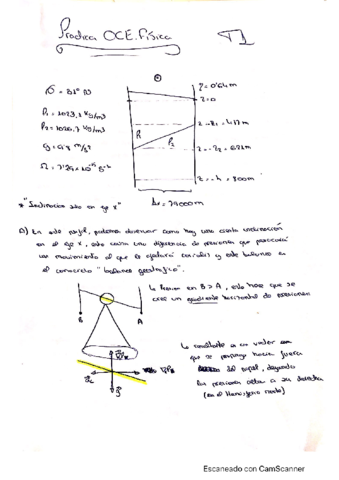 Practica OCE. Física T1
ρ1 = 1023,2 kg/m3
ρ2 = 1026,7 kg/m3
g = 9'8 m/s2
z=0
ρ1
ρ2
* "Inclinacion solo en eje x"
A) En este perfil, podemos observar como hay una cierta inclinación
en el eje x, esto causa una diferencia de presiones que provocará
un movimiento al que le afectará coriolis y este balance es
el conocido "balance geostrófico".
↳ Presion en B > A, esto hace que se
cree un gradiente horizontal de presiones
B
A
que se propaga hacia fuera
del papel, dejando
las presiones altas a su derecha
(en el Hemisferio norte)
Escaneado con CamScanner